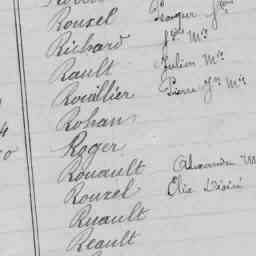 Rouxel
Richard Jph Mie
Rault Julien Mie
Rouillier Pierre Jn Mie
Rohan
Roger
Rouault Alexandre M
Rouxel Elie Désiré
Ruault
Reault